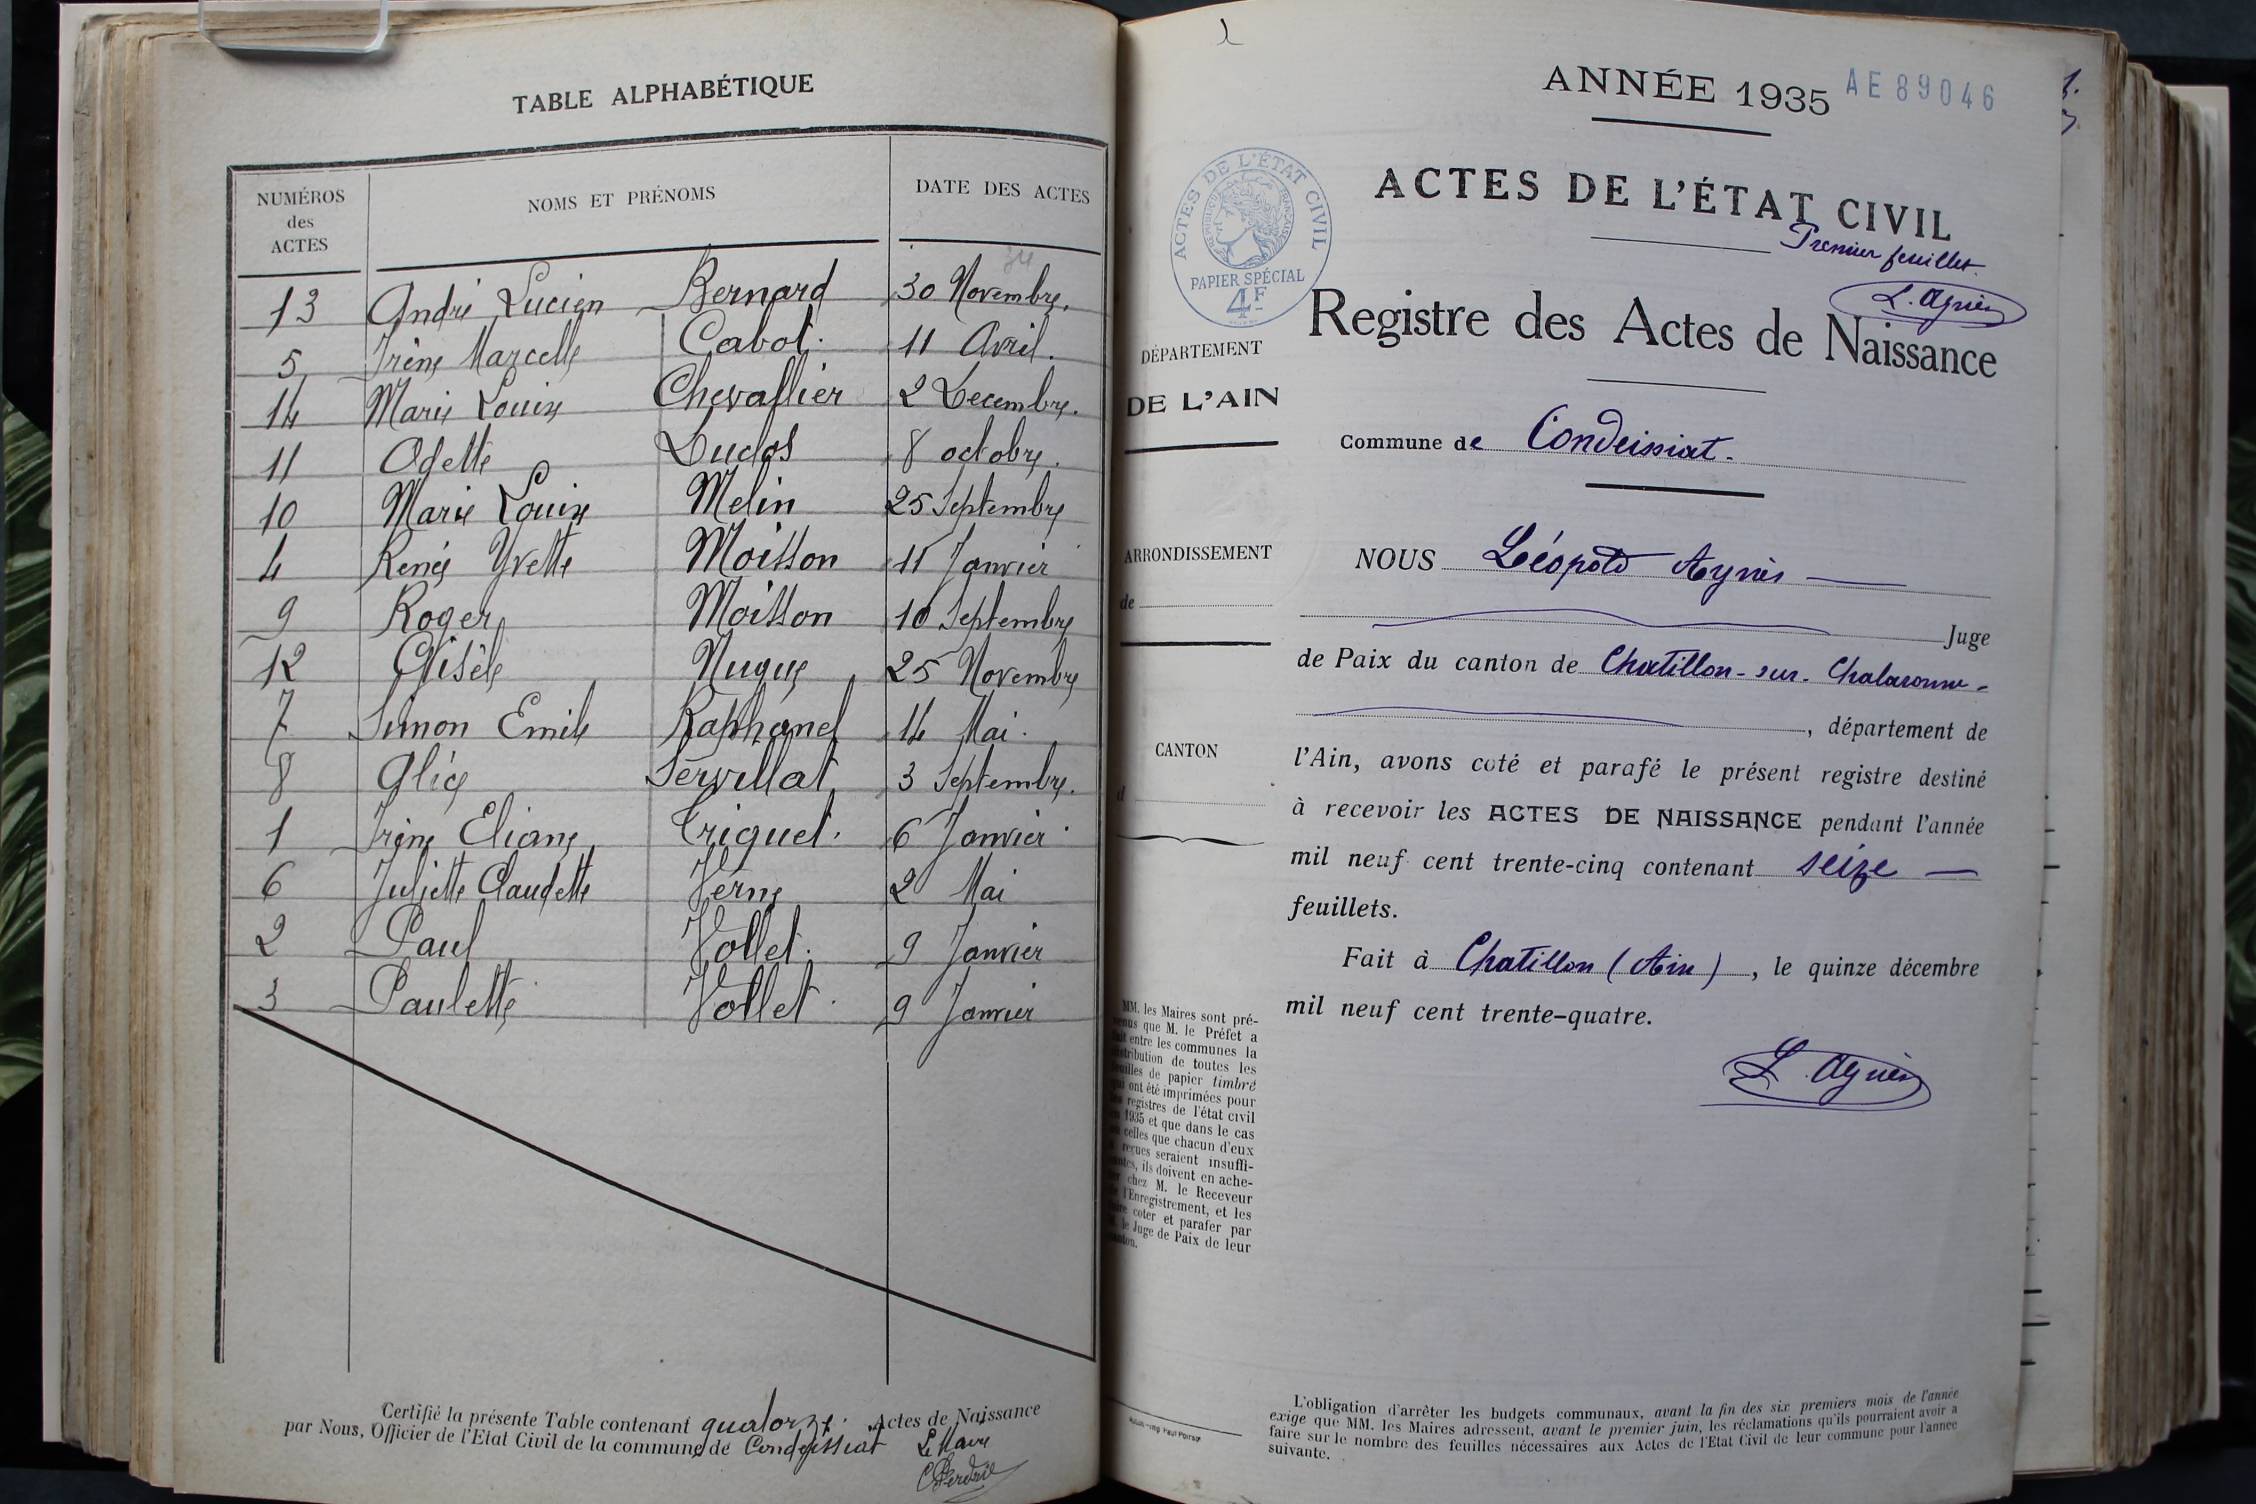 TABLE ALPHABÉTIQUE
NUMÉROS
des
ACTES
NOMS ET PRÉNOMS
DATE DES ACTES
34
13 André Lucien Bernard 30 Novembre.
5 Irène Marcelle Cabot. 11 Avril.
14 Marie Louise Chevallier 2 Decembre.
11 Odette Duclos 8 octobre.
10 Marie Louise Melin 25 Septembre
4 Renée Yvette Moisson 11 Janvier
9 Roger Moisson 10 Septembre
12 Gisèle Nugue 25 Novembre
7 Simon Emile Raphanel 14 Mai.
8 Alice Servillat 3 Septembre.
1 Irène Eliane Triquet. 6 Janvier.
6 Juliette Claudette Verne 2 Mai
2 Paul Vollet. 9 Janvier
3 Paulette Vollet. 9 Janvier
Certifié la présente Table contenant quatorze. Actes de Naissance
par Nous, Officier de l'Etat Civil de la commune de Condeissiat Le Maire
ANNÉE 1935 AE89046
ACTES DE L'ÉTAT CIVIL
Premier feuillet.
L. Aynès
ACTES DE L'ÉTAT CIVIL
RÉPUBLIQUE FRANÇAISE
PAPIER SPÉCIAL
4F
Registre des Actes de Naissance
DÉPARTEMENT
DE L'AIN
Commune de Condeissiat.
ARRONDISSEMENT
de
CANTON
d
NOUS Léopold Aynès
Juge
de Paix du canton de Chatillon-sur-Chalaronne-
, département de
l'Ain, avons coté et parafé le présent registre destiné
à recevoir les ACTES DE NAISSANCE pendant l'année
mil neuf cent trente-cinq contenant seize
feuillets.
Fait à Chatillon (Ain), le quinze décembre
mil neuf cent trente-quatre.
L. Aynès
MM. les Maires sont pré-
venus que M. le Préfet a
fait entre les communes la
distribution de toutes les
feuilles de papier timbré
qui ont été imprimées pour
les registres de l'état civil
en 1935 et que dans le cas
où celles que chacun d'eux
a reçues seraient insuffi-
santes, ils doivent en ache-
ter chez M. le Receveur
de l'Enregistrement, et les
faire coter et parafer par
M. le Juge de Paix de leur
canton.
L'obligation d'arrêter les budgets communaux, avant la fin des six premiers mois de l'année
exige que MM. les Maires adressent, avant le premier juin, les réclamations qu'ils pourraient avoir à
faire sur le nombre des feuilles nécessaires aux Actes de l'Etat Civil de leur commune pour l'année
suivante.